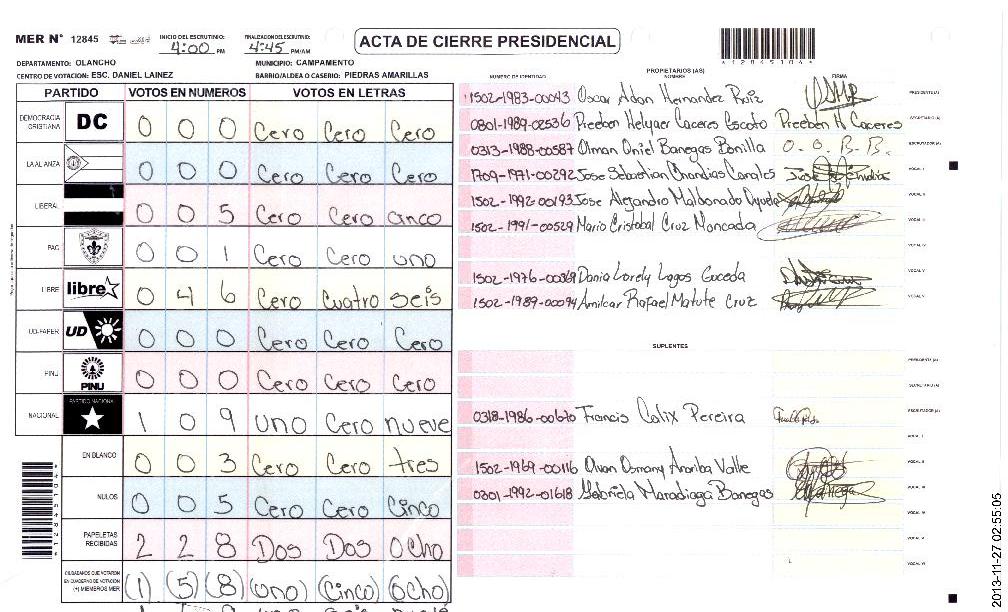 MER N° 12845
INICIO DEL ESCRUTINIO: 4:00 PM
FINALIZACION DEL ESCRUTINIO: 4:45 PM/AM
ACTA DE CIERRE PRESIDENCIAL
*12845104*
DEPARTAMENTO: OLANCHO
MUNICIPIO: CAMPAMENTO
CENTRO DE VOTACION: ESC. DANIEL LAINEZ
BARRIO/ALDEA O CASERIO: PIEDRAS AMARILLAS
PARTIDO VOTOS EN NUMEROS VOTOS EN LETRAS
DEMOCRACIA CRISTIANA DC 0 0 0 Cero Cero Cero
LA ALIANZA 0 0 0 Cero Cero Cero
LIBERAL 0 0 5 Cero Cero cinco
PAC 0 0 1 Cero Cero uno
LIBRE libre 0 4 6 Cero Cuatro seis
UD-FAPER UD 0 0 0 Cero Cero Cero
PINU PINU 0 0 0 Cero Cero Cero
NACIONAL PARTIDO NACIONAL 1 0 9 uno Cero nueve
EN BLANCO 0 0 3 Cero Cero tres
NULOS 0 0 5 Cero Cero Cinco
PAPELETAS RECIBIDAS 2 2 8 Dos Dos Ocho
CIUDADANOS QUE VOTARON EN CUADERNO DE VOTACION (+) MIEMBROS MER (1) (5) (8) (uno) (Cinco) (Ocho)
PROPIETARIOS (AS)
NUMERO DE IDENTIDAD NOMBRE FIRMA
1502-1983-00043 Oscar Adan Hernandez Ruiz PRESIDENTE (A)
0801-1989-02536 Preeben Helyaer Caceres Escoto Preeben H Caceres SECRETARIO (A)
0313-1988-00587 Olman Oniel Banegas Bonilla O. O. B. B. ESCRUTADOR (A)
1709-1971-00292 Jose Sebastian Chandias Canales VOCAL I
1502-1992-00193 Jose Alejandro Maldonado VOCAL II
1502-1991-00529 Mario Cristobal Cruz Moncada VOCAL III
VOCAL IV
1502-1976-00369 Dania Lorely Lagos VOCAL V
1502-1989-00094 Amilcar Rafael Matute Cruz
SUPLENTES
PRESIDENTE (A)
SECRETARIO (A)
0318-1986-00670 Francis Calix Pereira ESCRUTADOR (A)
VOCAL I
1502-1969-00116 VOCAL II
0301-1992-01618 Gabriela Maradiaga Banegas VOCAL III
VOCAL IV
VOCAL V
VOCAL VI
2013-11-27 02:55:05